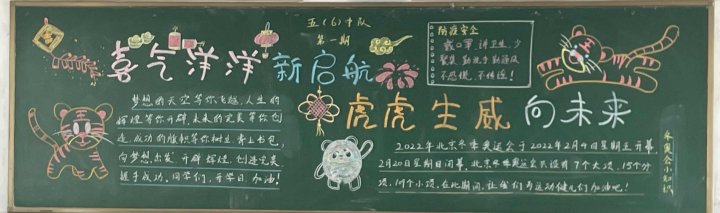 五（6）中队
第一期
喜气洋洋 新启航
虎虎生威 向未来
防疫安全
戴口罩 讲卫生，少
聚集 勤洗手 勤通风
不恐慌，不传谣！
梦想的天空等你飞翔，人生的
辉煌等你开辟，未来的完美等你创
造，成功的旗帜等你树立，背上书包，
向梦想出发，开辟辉煌，创造完美
握手成功，同学们，开学日，加油！
2022年北京冬季奥运会于2022年2月4日星期五开幕，
2月20日星期日闭幕，北京冬季奥运会共设有7个大项，15个分
项，109个小项，在此期间，让我们为运动健儿们加油吧！
冬奥会小知识